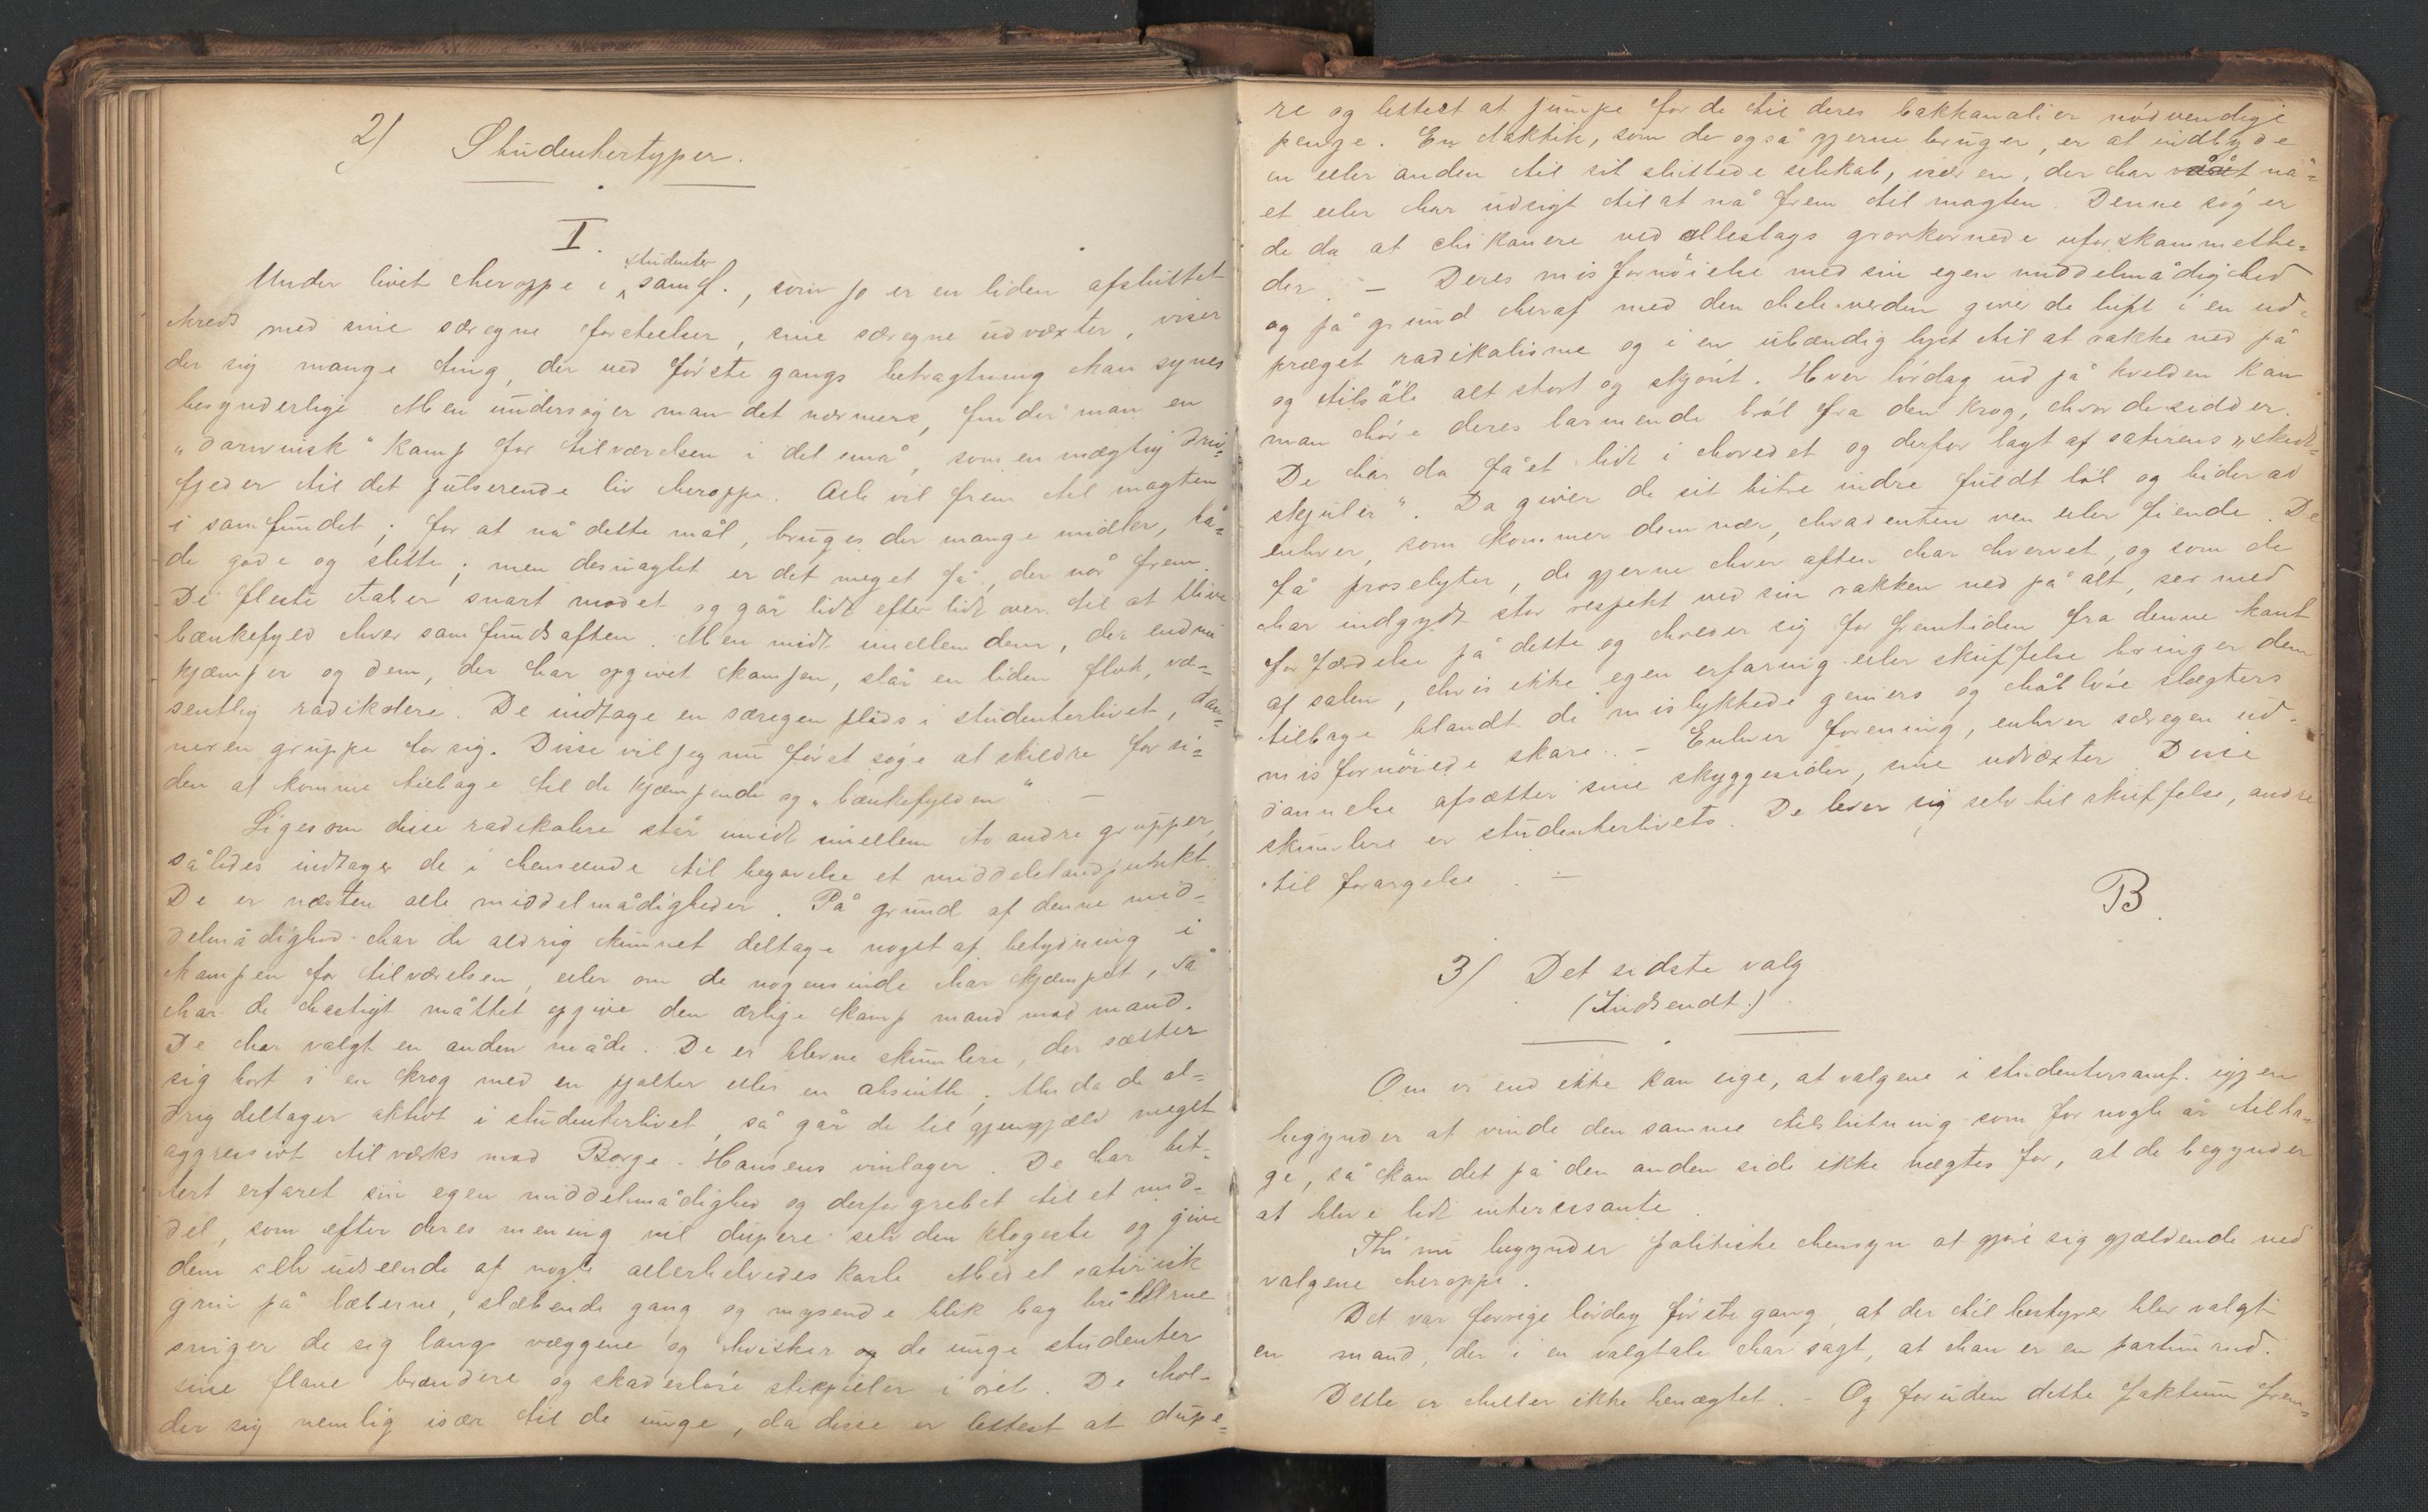 2) Studentertyper.
I.
Under livet heroppe i studentersamf., som jo er en liden afsluttet
kreds med sine særegne foreteelser, sine særegne udvæxter, viser
der sig mange ting, der ved første gangs betragtning kan synes
besynderlige. Men undersøger man det nærmere, finder man en
„darwinsk“ kamp for tilværelsen i det små, som en mægtig driv-
fjeder til det pulserende liv heroppe. Alle vil frem til magten
i samfundet; for at nå dette mål, bruges der mange midler, bå-
de gode og slette; men desuagtet er det meget få, der når frem.
De fleste taber snart modet og går lidt efter lidt over til at blive
bænkefyld hver samfundsaften. Men midt imellem dem, der endnu
kjæmper og dem, der har opgivet kampen, står en liden flok, væ-
sentlig radikalere. De indtage en særegen plads i studenterlivet, dan-
ner en gruppe for sig. Disse vil jeg nu først søge at skildre for si-
den at komme tilbage til de kjæmpende og „bænkefylden“. –
Ligesom disse radikalere står midt imellem to andre grupper,
således indtager de i henseende til begavelse et middelstandpunkt.
De er næsten alle middelmådigheder. På grund af denne mid-
delmådighed har de aldrig kunnet deltage noget af betydning i
kampen for tilværelsen, eller om de nogensinde har kjæmpet, så
har de hastigt måttet opgive den ærlige kamp mand mod mand.
De har valgt en anden måde. De er blevne skumlere, der sætter
sig bort i en krog med en pjalter eller en absinth; Men da de al-
drig deltager aktivt i studenterlivet, så går de til gjengjæld meget
aggressivt tilværks mod Borge-Hansens vinlager. De har bit-
tert erfaret sin egen middelmådighed og derfor grebet til et mid-
del, som efter deres mening vil dupere selv den klogeste og give
dem selv udseende af nogle allerhelvedes karle. Med et satirisk
grin på læberne, slæbende gang og mysende blik bag brillerne
sniger de sig langs væggene og hvisker og de unge studenter
sine flaue brandere og skadesløse stikpiller i øret. De hol-
der sig nemlig især til de unge, da disse er lettest at dupe-
re og lettest at pumpe for de til deres bakkanalier nødvendige
penge. En taktik, som de også gjerne bruger, er at indbyde
en eller anden til sit sluttede selskab, især en, der har nå-
et eller har udsigt til at nå frem til magten. Denne søger
de da at chikanere ved alleslags grovkornede uforskammethe-
der. – Deres misfornøielse med sin egen middelmådighed
og på grund heraf med den hele verden giver de luft i en ud-
præget radikalisme og i en ubændig lyst til at rakke ned på
og tilsøle alt stort og skjønt. Hver lørdag ud på kvelden kan
man høre deres larmende brøl fra den krog, hvor de sidder.
De har da fået lidt i hovedet og derfor lagt af satirens „skidt-
skjuler“. Da giver de sit bitre indre fuldt løb og bider ad
enhver, som kommer dem nær, hvadenten ven eller fiende. De
få proselyter, de gjerne hver aften har hvervet, og som de
har indgydt stor respekt ved sin rakken ned på alt, ser med
forfærdelse på dette og holder sig for fremtiden fra denne kant
af salen, hvis ikke egen erfaring eller skuffelse bringer dem
tilbage blandt de mislykkede geniers og håbløse slægters
misfornøiede skare. – Enhver forening, enhver særegen ud-
dannelse afsætter sine skyggesider, sine udvæxter. Disse
skumlere er studenterlivets. De lever sig selv til skuffelse, andre
til forargelse. –
B.
3) Det sidste valg
(Indsendt.)
Om vi end ikke kan sige, at valgene i studentersamf. igjen
begynder at vinde den samme tilslutning som for nogle år tilba-
ge, så kan det på den anden side ikke nægtes for, at de begynder
at blive lidt interessante.
Thi nu begynder politiske hensyn at gjøre sig gjældende ved
valgene heroppe.
Det var forrige lørdag første gang, at der til bestyrer blev valgt
en mand, der i en valgtale har sagt, at han er en partimand.
Dette er heller ikke benægtet. – Og foruden dette faktum frem-